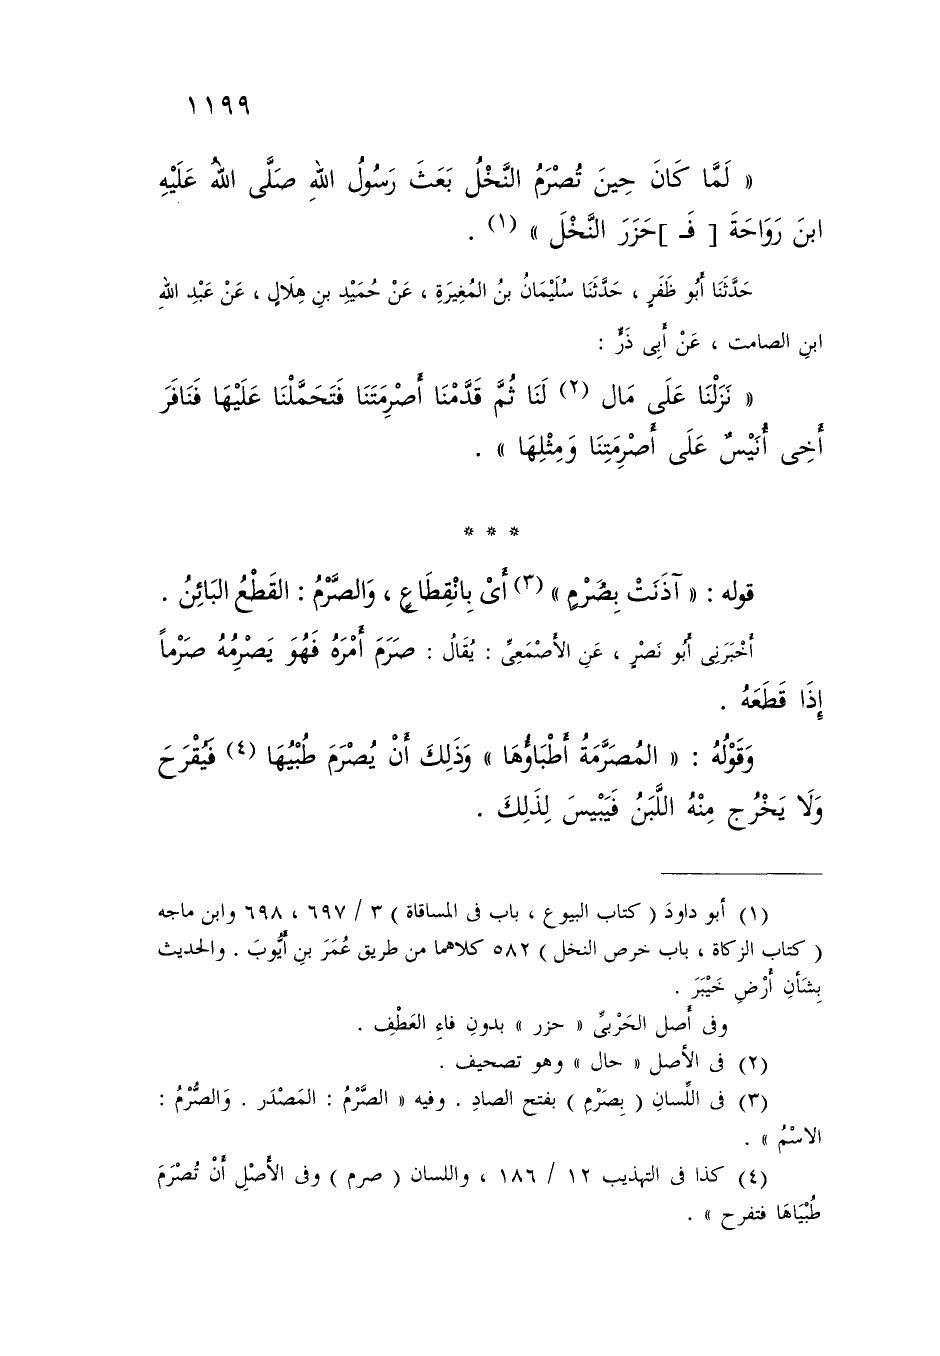 ١١٩٩
« لَمَّا كَانَ حِينَ تُصْرَمُ النَّخْلُ بَعَثَ رَسُولُ اللهِ صَلَّى اللهُ عَلَيْهِ
ابنَ رَوَاحَةَ [ فَـ ]حَزَرَ النَّخْلَ » (١) .
حَدَّثَنَا أَبُو ظَفَرٍ ، حَدَّثَنَا سُلَيْمَانُ بنُ المُغِيرَةِ ، عَنْ حُمَيْدِ بنِ هِلَالٍ ، عَنْ عَبْدِ اللهِ
ابنِ الصامت ، عَنْ أَبِى ذَرٍّ :
« نَزَلْنَا عَلَى مَال (٢) لَنَا ثُمَّ قَدَّمْنَا أَصْرِمَتَنَا فَتَحَمَّلْنَا عَلَيْهَا فَنَافَرَ
أَخِى أُنَيْسٌ عَلَى أَصْرِمَتِنَا وَمِثْلِهَا » .
* * *
قوله : « آذَنَتْ بِصُرْمٍ » (٣) أَىْ بِانْقِطَاعٍ ، وَالصَّرْمُ : القَطْعُ البَائِنُ .
أَخْبَرَنِى أَبُو نَصْرٍ ، عَنِ الأَصْمَعِىِّ : يُقَالُ : صَرَمَ أَمْرَهُ فَهُوَ يَصْرِمُهُ صَرْماً
إِذَا قَطَعَهُ .
وَقَوْلُهُ : « المُصَرَّمَةُ أَطْبَاؤُهَا » وَذَلِكَ أَنْ يُصْرَمَ طُبْيُهَا (٤) فَيُقْرَحَ
وَلَا يَخْرُج مِنْهُ اللَّبَنُ فَيَبْيسَ لِذَلِكَ .
(١) أبو داودَ ( كتاب البيوع ، باب فى المساقاة ) ٣ / ٦٩٧ ، ٦٩٨ وابن ماجه
( كتاب الزكاة ، باب خرص النخل ) ٥٨٢ كلاهما من طريق عُمَرَ بنِ أَيُّوبَ . والحديث
بِشَأنِ أَرْضِ خَيْبَرَ .
وفى أَصل الحَرْبىِّ « حزر » بدونِ فاءِ العَطْفِ .
(٢) فى الأصل « حال » وهو تصحيف .
(٣) فى اللِّسانِ ( بِصَرْمٍ ) بفتح الصادِ . وفيه « الصَّرْمُ : المَصْدَر . وَالصُّرْمُ :
الاسْمُ » .
(٤) كذا فى التهذيب ١٢ / ١٨٦ ، واللسان ( صرم ) وفى الأَصْلِ أَنْ تُصْرَمَ
طُبْيَاهَا فتفرح » .